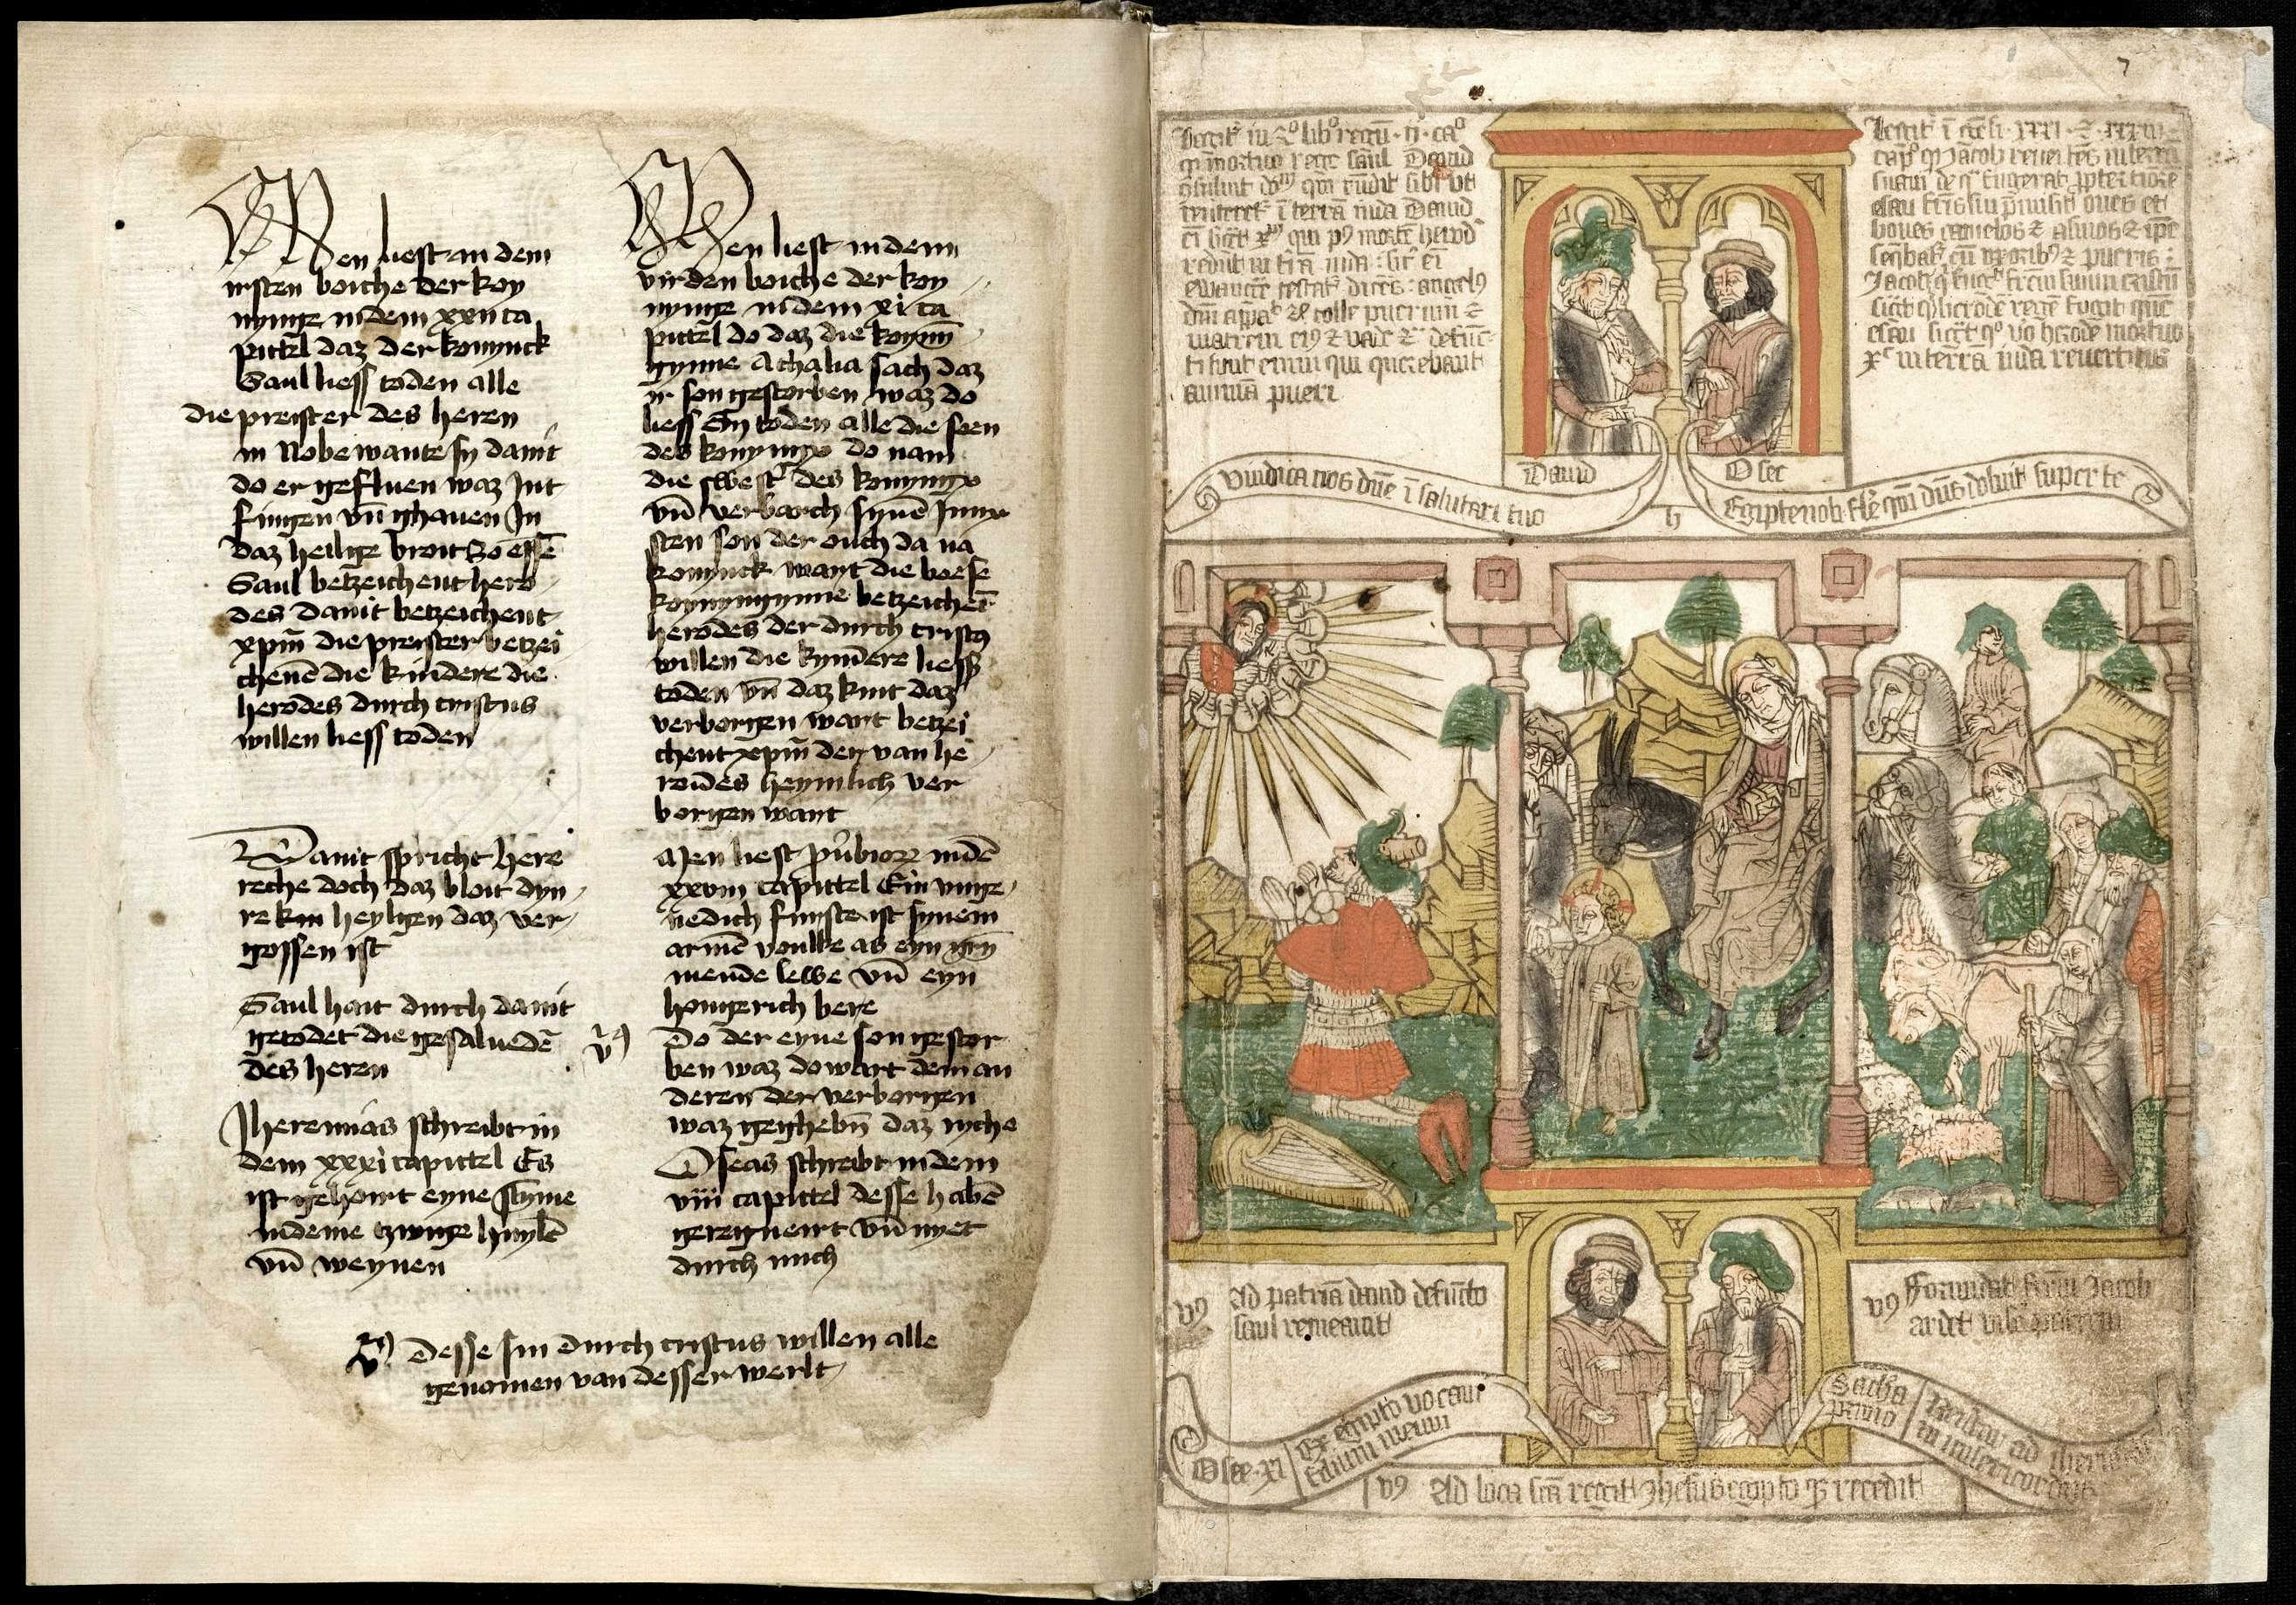 Men liest an dem
irsten boiche der koy
nynge in dem xxii ca
pittel daz der konynck
Saul liess toden alle
die preister des heren
in Nobe wante sy davit
do er gefluen waz Int
fingen vn̄ ghauen Jn
daz heilige broit zo essē
Saul betzeichent hero
des Davit betzeichent
xpm̄ die preister betzei
chenē die kindere die
herodes durch cristus
willen liess toden
Davit spricht here
reche doch daz bloit dyn
re kin heyligen daz ver
gossen ist
Saul hait durch davit
getodet die gesaluedē
des heren
Jheremias schreibt in
dem xxxi capittel Es
ist gehoirt eyne styme
in deme
vn̄ weynen
Men liest in dem
virden boiche der koy
nynge in dem xi ca
pittel do daz die koynī
gynne Athalia sach daz
ir son gestorben waz do
liess Sy toden alle die soen
des konyngx do nam
die swest' des konyngx
vn̄ verbarch synē Junx
sten son der ouch da na
konynck wart die boese
koynyngynne betzeichēt
herodes der durch cristus
willen die kyndere liess
toden vn̄ daz kint daz
verborgen wart betzei
chent xpm̄ der van he
rodes heymlich ver
borgen wart
Men liest in dē
xxviii capittel Ein
furste ist synem
armē voulke as eyn
mende lewe vn̄ eyn
hongerich bere
v9 Do der eyne son gestor
ben waz do wart dem an
deren der verborgen
waz geghebn̄ daz ryche
Oseas schreibt in dem
viii capittel desse habē
gereigneirt vn̄ nyet
durch mich
v9 Desse sin durch cristus willen alle
genomen van desser werlt
7
Legit' in 2o libo regū · ii · cao
qm mortuo rege saul David
ɔsuluit dom qui rn̄dit sibi vt
iret' ī terrā iuda David
ei siḡt xm qui p9 mortē herod
redijt in trā iuda : sic ei
ewangē testat' dicēs : angel9
dn̄i appao tolle puerum 2
matrem ei9 2 vade 2c defūc
ti sunt enim qui querebant
animā pueri
Legit' ī gn̄esi · xxxi · 2 · xxxiii
capo q iacob revertēs in terrā
suam de q fugerat ppter
esau fr̄is sui p̄misit oues et
boues camelos 2 asinos 2 ipē
seq̄bat' cū vxorib9 2 pueris :
Jacob q fugit fr̄em suum
herode regē fugit
esau siḡt herode mortuo
xc in terra iuda revertitus
David
Osee
Visita nos dn̄e ī salutari tuo
h
Egiptē noli flē qm̄ dn̄s doluit super te
v9 Ad patriā david defūcto
saul remeavit
v9 Formidat frēm Jacob
ardet
Osee · xi
Ex egipto vocavi
filium meum
Sacha
primo
Revertar ad
in misericordiis
v9 Ad loca scā redit Jhesus egipto recedit